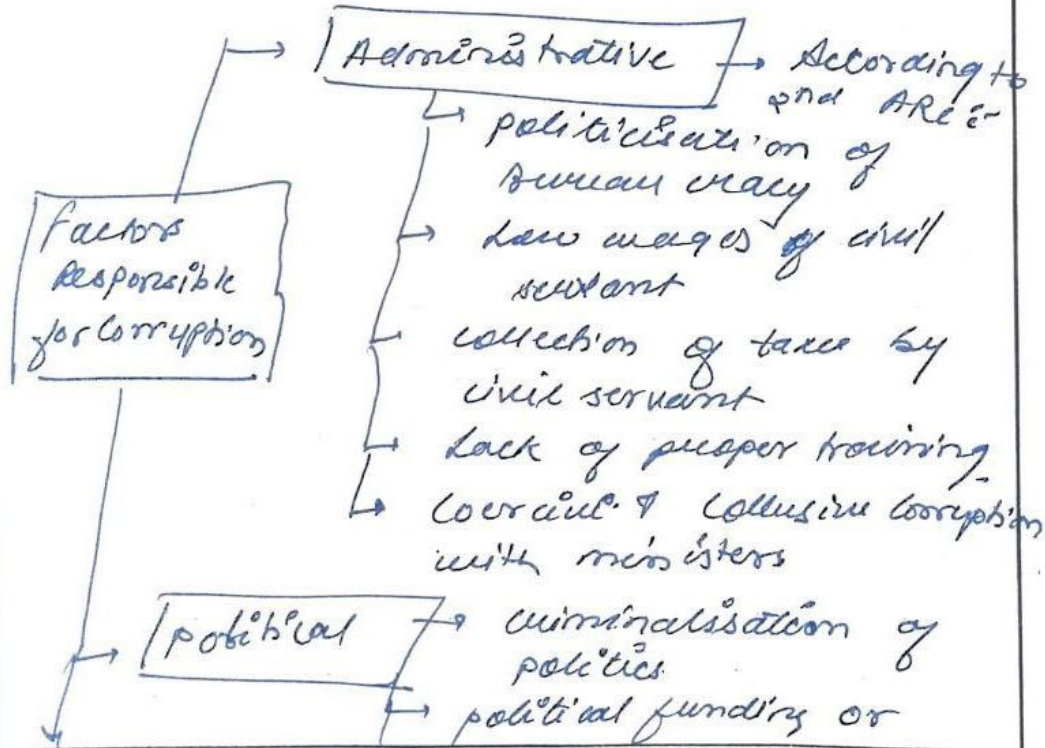 Administrative
According to
2nd ARC :-
politicisation of
Bureaucracy
Low wages of civil
servant
collection of taxes by
civil servant
Lack of proper training
Coercive & Collusive Corruption
with ministers
Factors
Responsible
for Corruption
political
criminalisation of
politics
political funding or